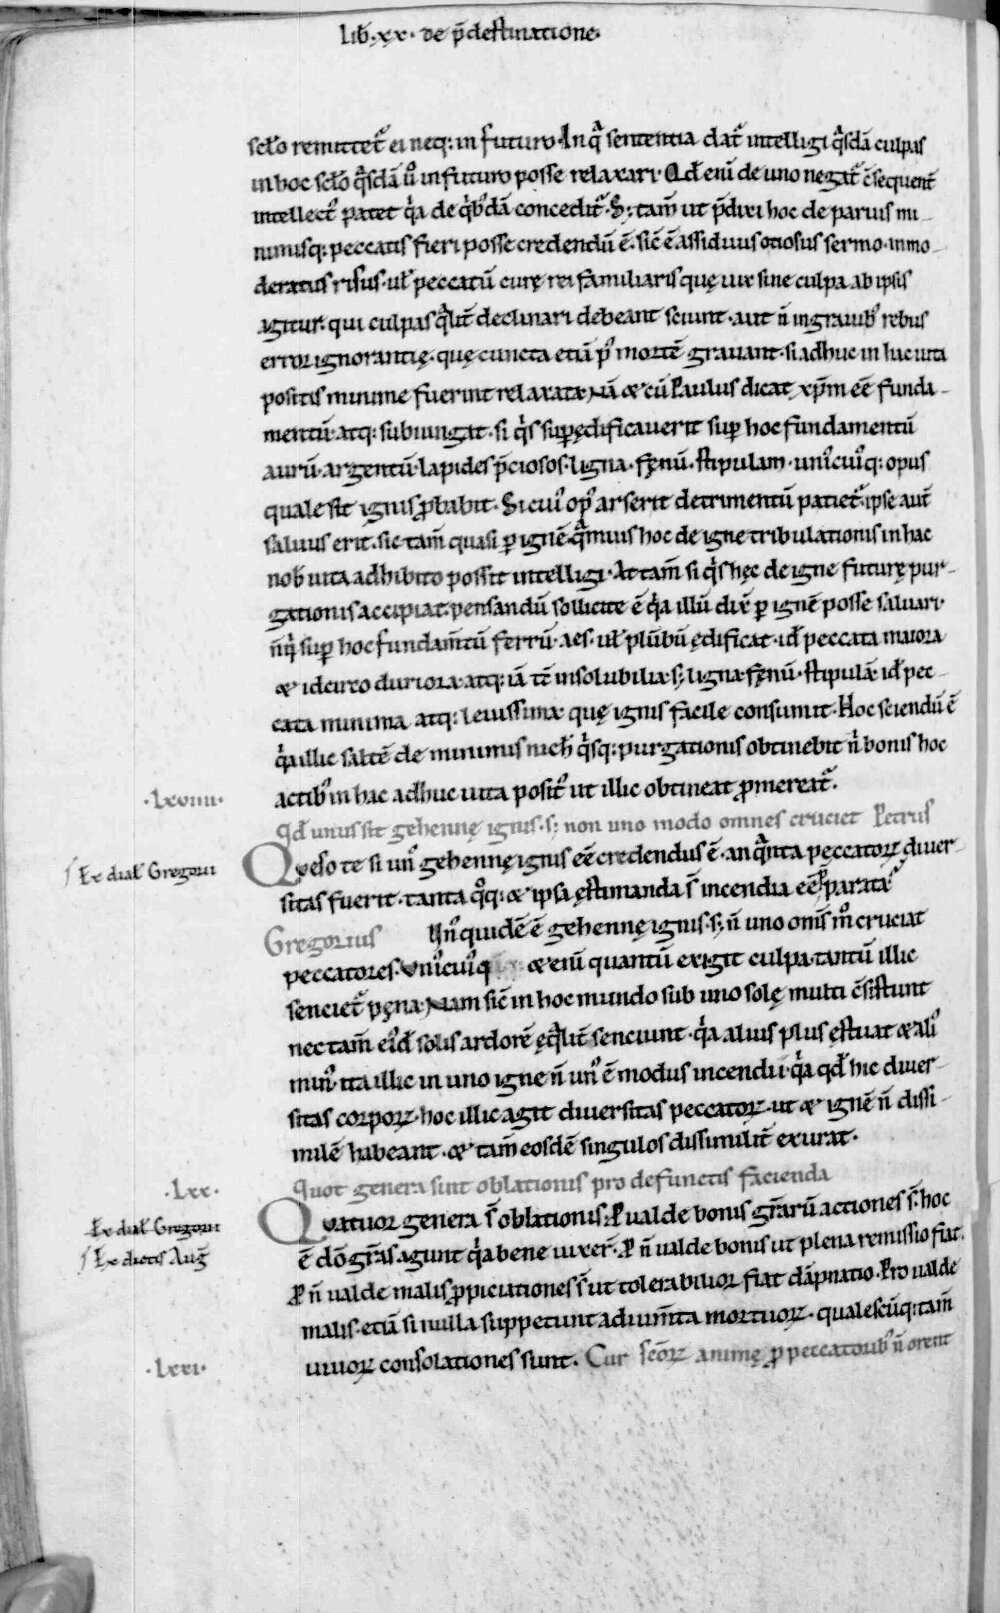 Lib̄·xx· de p̄destinatione·
sclo remittet᷒ ei neq: in futuro· In qᷓ sententia dat᷒ intelligi qᷓsdā culpas
in hoc sclo qᷓsdā ū in futuro posse relaxari· Qd̄ eni de uno negat᷒ c̄sequent̄
intellect᷒ patet qᷓa de qᷤb᷒dā concedit᷒· S; tam̄ ut p̄dixi hoc de paruis mi-
nimisq: peccatis fieri posse credendū ē· sic̄ ē assiduus otiosus sermo· inmo-
deratus risus· ul̄ peccatū curę rei familiaris quę uix sine culpa ab ipsis
agitur· qui culpas qᷓlit̄ declinari debeant sciunt· aut n̄ in grauib᷒ rebus
error ignorantię· quę cuncta etiā p᷒ mortē grauant· si adhuc in hac uita
positis minime fuerint relaxata· Nā & cū Paulus dicat xp̄m eē funda-
mentū· atq: subiungat· si qᷤs supędificauerit sup hoc fundamentū
aurū· argentū· lapides p̄ciosos· ligna· fęnū· stipulam· uni᷒cui᷒q: opus
quale sit ignis ꝓbabit· Si cui᷒ op᷒ arserit detrimentū patiet᷒· ipse aut̄
saluus erit· sic tam̄ quasi ꝑ ignē· qᷓmuis hoc de igne tribulationis in hac
nob̄ uita adhibito possit intelligi· At tam̄ si qᷤs hęc de igne futurę pur-
gationis accipiat· pensandū sollicite ē qᷓa illū dix̄ ꝑ ignē posse saluari·
n̄ qᷤ sup hoc fundam̄tū ferrū· aes· ul̄ plūbū ędificat· id̄ peccata maiora
& idcirco duriora· atq: iā tc̄ insolubilia· s; ligna· fęnū· stipulā· id̄ pec-
cata minima atq: leuissima· quę ignis facile consumit· Hoc sciendū ē
qᷓa illic saltē de minimis nich̄ qᷤsq: purgationis obtinebit n̄ bonis hoc
actib᷒ in hac adhuc uita posit᷒ ut illic obtineat ꝓmereat᷒·
·Lxviiii·
Qd̄ unus sit gehennę ignis· s; non uno modo omnes cruciet Petrus
Ex dial̄ Gregorii
Quęso te si un᷒ gehennę ignis eē credendus ē· an qᷓnta peccatoꝝ diuer-
sitas fuerit· tanta qᷓq: & ipsa ęstimanda s̄ incendia eē p̄parata·
Gregorius Un᷒ quidē ē gehennę ignis· s; n̄ uno om̄s m᷒ cruciat
peccatores· Uni᷒cui᷒q & eni quantū exigit culpa· tantū illic
senciet᷒ pęna· Nam sic̄ in hoc mundo sub uno solę multi c̄sistunt
nec tam̄ ei᷒d̄ solis ardorē ęqᷓlit̄ senciunt· qᷓa alius plus ęstuat & ali᷒
min᷒· ita illic in uno igne n̄ un᷒ ē modus incendii· qᷓa qd̄ hic diuer-
sitas corpoꝝ· hoc illic agit diuersitas peccatoꝝ· ut & ignē n̄ dissi-
milē habeant· & tam̄ eosdē singulos dissimilit̄ exurat·
·Lxx·
Quot genera sint oblationis pro defunctis facienda
Ex dial̄ Gregorii
Ex dictis Auḡ
Quatuor genera s̄ oblationis· P ualde bonis gr̄arū actiones s̄· hoc
ē dō gr̄as agunt qᷓa bene uixer̄· P n̄ ualde bonis ut plena remissio fiat·
P n̄ ualde malis ꝓpiciationes s̄ ut tolerabilior fiat dāpnatio· Pro ualde
malis· etiā si nulla suppetunt adium̄ta mortuoꝝ· qualescūq: tam̄
uiuoꝝ consolationes sunt· Cur sc̄oꝝ animę ꝓ peccatorib᷒ n̄ orent
·Lxxi·